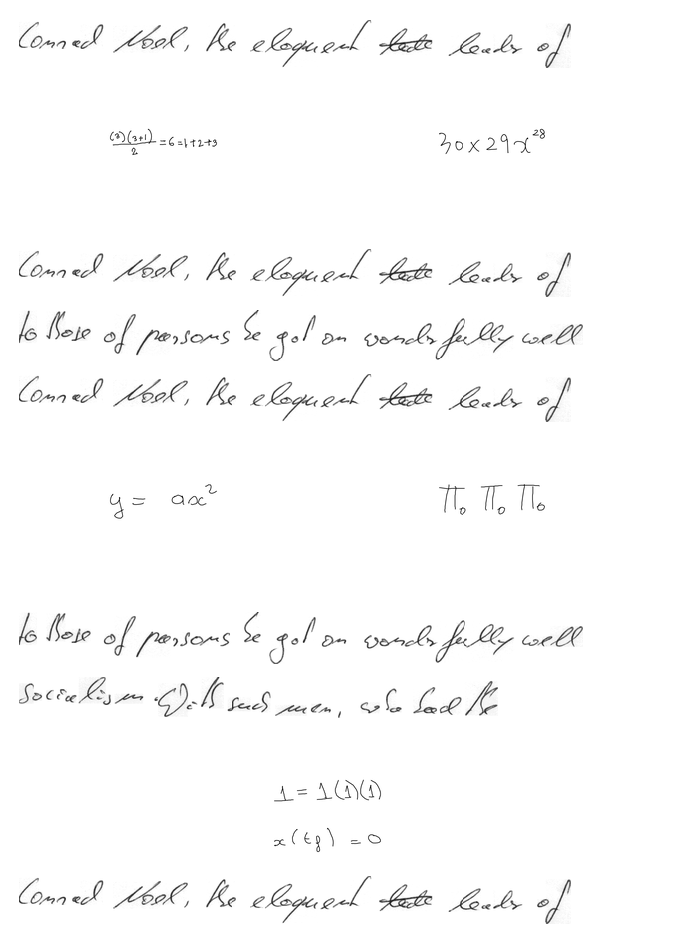 Conrad Noel, the eloquent leader of
\frac{(3)(3+1)}{2} = 6 = 1+2+3 30 × 29x^{28}
Conrad Noel, the eloquent leader of
to those of parsons he got on wonderfully well
Conrad Noel, the eloquent leader of
y = ax^2 Π_0 Π_0 Π_0
to those of parsons he got on wonderfully well
socialism. With such men, who had the
1 = 1(1)(1)
x(t_f) = 0
Conrad Noel, the eloquent leader of